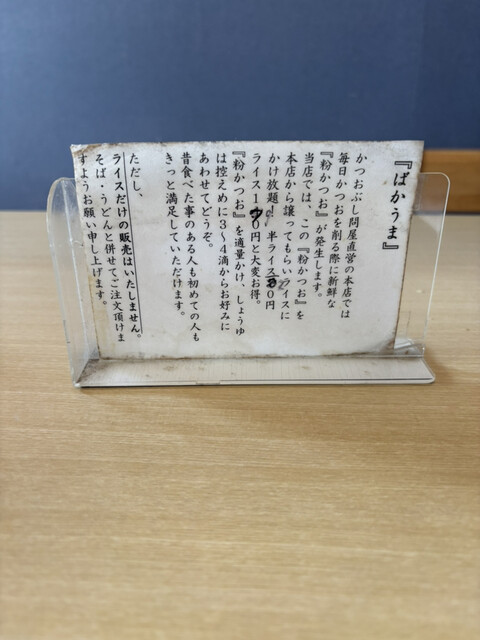 『ばかうま』
かつおぶし問屋直営の本店では
毎日かつおを削る際に新鮮な
『粉かつお』が発生します。
当店では、この『粉かつお』を
本店から譲ってもらいライスに
かけ放題!半ライス 0円
ライス1 0円と大変お得。
『粉かつお』を適量かけ、しょうゆ
は控えめに3〜4滴からお好みに
あわせてどうぞ。
昔食べた事のある人も初めての人も
きっと満足していただけます。
ただし、
ライスだけの販売はいたしません。
そば・うどんと併せてご注文頂けま
すようお願い申し上げます。